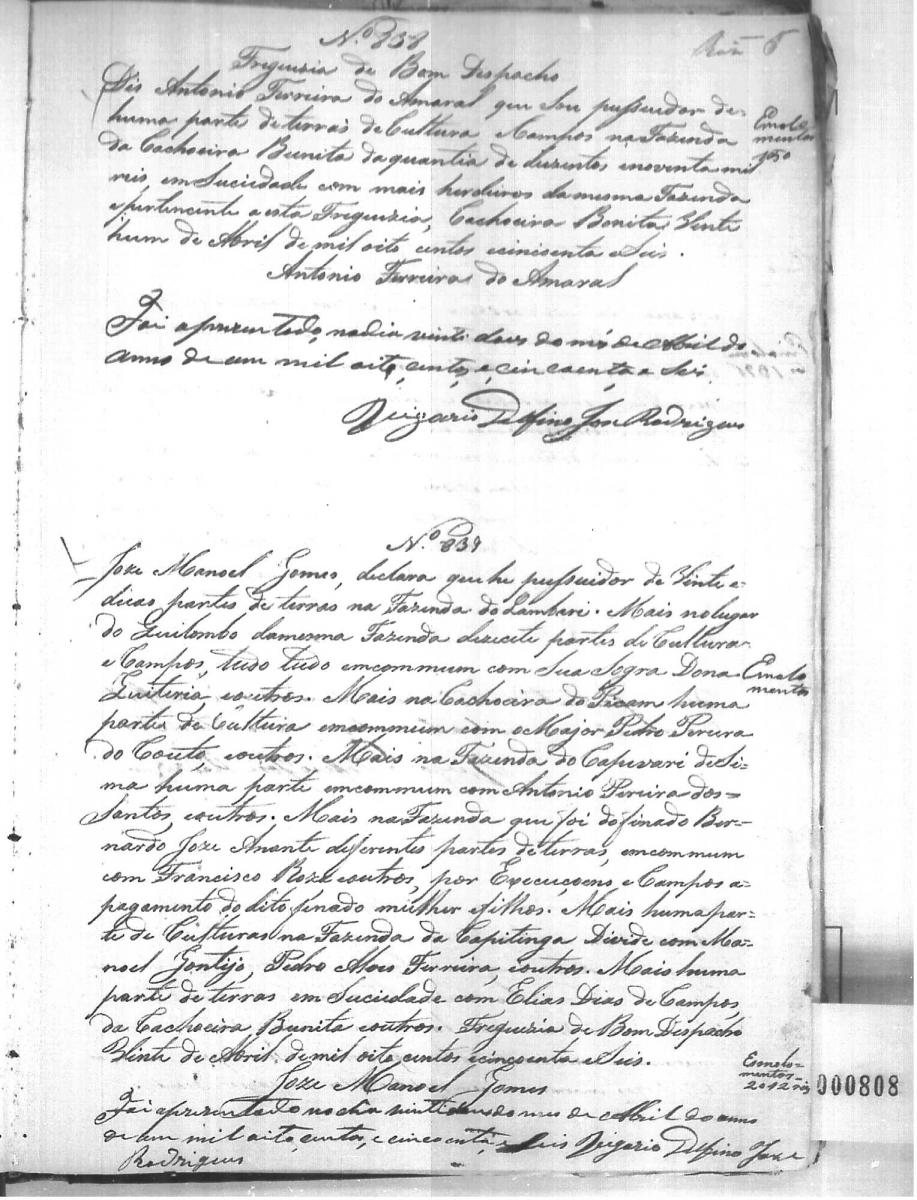 N.º 838
Freguezia de Bom Despacho
Dis Antonio Ferreira do Amaral que sou pussuidor de
huma parte de terras de Cultura e Campos na Fazenda
da Cachoeira Bunita da quantia de duzentos enoventa mil
reis em Suciedade com mais herdeiros da mesma Fazenda
epertencente a esta Freguizia, Cachoeira Bonita Vinte
hum de Abril de mil oito centos ecincoenta e Seis.
Antonio Ferreira do Amaral
Foi aprezentado, no dia vinti dous do mês de Abril do
anno de um mil oito centos, e cincoenta e Seis
Veigario Delfino Jose Rodrigues
N.º 839
Joze Manoel Gomes, declara que he pussuidor de Vinte e-
duas partes de terras na Fazenda do Lambari. Mais no lugar
do Quilombo damesma Fazenda dezecete partes de Cultura
e Campos, tudo emcommum com Sua Sogra Dona
Quiteria, eoutros. Mais na Cachoeira do Picam huma
parte de Cultura emcommum com o Major Pedro Pereira
do Couto, eoutros. Mais na Fazenda do Capevari de Si-
ma huma parte emcommum com Antonio Pereira dos=
Santos, eoutros. Mais na Fazenda que foi dofinado Ber=
nardo Joze Anante diferentes partes de terras, emcommum
com Francisco Roza eoutros, por e Campos a-
pagamento dodito finado mulher efilhos. Mais huma par=
te de Culturas na Fazenda da Capitinga Divide com Ma=
noel Gontijo, Pedro Alves Ferreira, eoutros. Mais huma
parte de terras em Suciedade com Elias Dias de Campos,
da Cachoeira Bunita eoutros. Freguizia de Bom Despacho
Vinte de Abril de mil oito centos ecincoenta e Seis.
Joze Manoel Gomes
Foi aprezentado no dia vinti do mes de Abril do anno
de um mil oito, centos, e cincoenta, e Seis Veigario Delfino Joze
Rodrigues
Emolo
mentos
Emolo
mentos
Emolo-
mentos-
000808